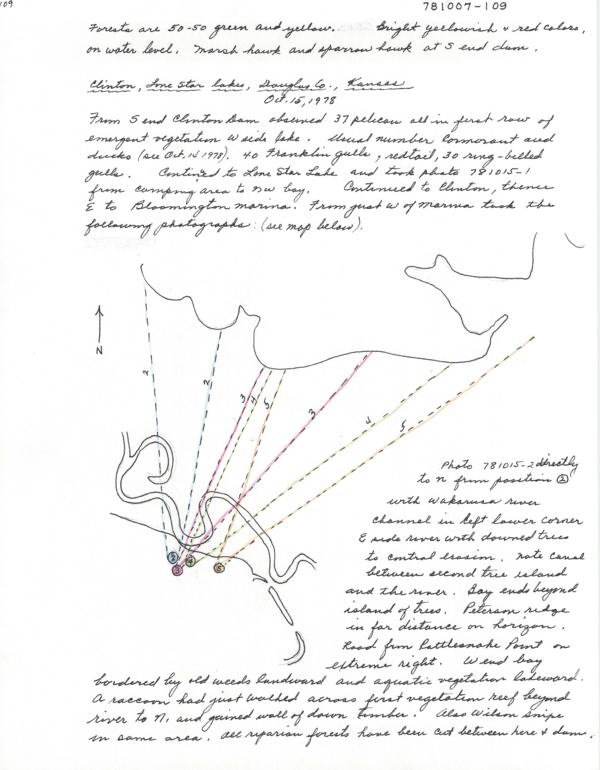 109
781007-109
Forests are 50-50 green and yellow. Bright yellowish + red colors,
on water level. Marsh hawk and sparrow hawk at S end dam.
Clinton, Lone Star lakes, Douglas Co., Kansas
Oct. 15, 1978
From S end Clinton Dam observed 37 pelican all in first row of
emergent vegetation W side lake. Usual number Cormorant and
ducks (see Oct. 1978). 40 Franklin gulls, redtail, 30 ring-billed
gulls. Contin'd to Lone Star Lake and took photo 781015-1
from camping area to NW bay. Continued to Clinton, thence
E to Bloomington marina. From just W of Marina took the
following photographs: (see map below).
N
2
2
3
4
5
3
4
5
2
3
4
5
Photo 781015-2 directly
to N from position 2
with Wakarusa river
channel in left lower corner
E side river with downed trees
to control erosion. Note canal
between second tree island
and the river. Bay ends beyond
island of trees. Peterson ridge
in far distance on horizon.
Road from Rattlesnake Point on
extreme right. W end bay
bordered by old weeds landward and aquatic vegetation lakeward.
A raccoon had just walked across first vegetation reef beyond
river to N, and gained wall of down timber. Also Wilson snipe
in same area. All riparian forests have been cut between here + dam.